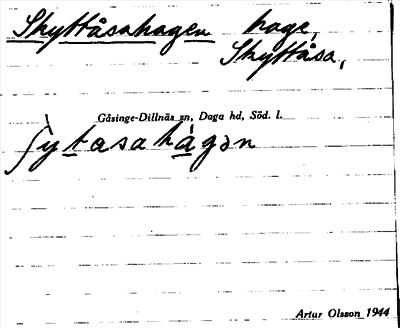 Skyttåsahagen hage,
Skyttåsa,
Gåsinge-Dillnäs sn, Daga hd, Söd. l.
ʃỳtasahàgən
Artur Olsson 1944